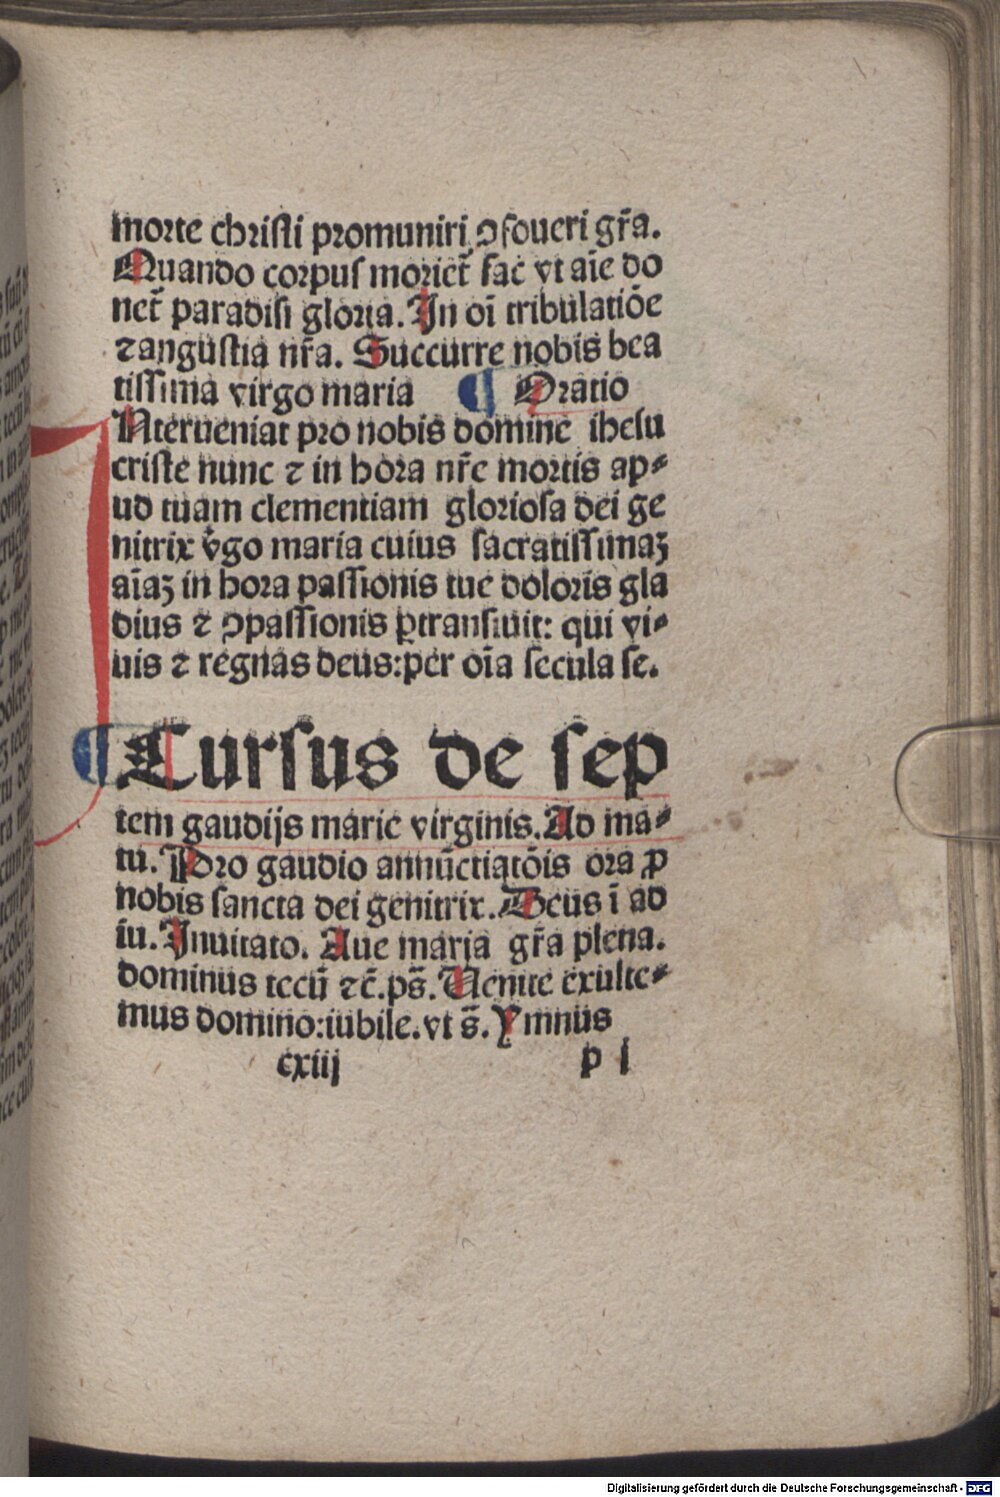 morte christi promuniri ↄfoueri gr̄a.
Quando corpus moriet̄ fac vt aīe do
net̄ paradisi gloria. In oī tribulatiōe
⁊ angustia nr̄a. Succurre nobis bea
tissima virgo maria ¶ Oratio
INterueniat pro nobis domine ihesu
criste nunc ⁊ in hora nr̄e mortis ap⸗
ud tuam clementiam gloriosa dei ge
nitrix v̓go maria cuius sacratissimaꝫ
aīaꝫ in hora passionis tue doloris gla
dius ⁊ ↄpassionis ꝑtransiuit: qui vi⸗
uis ⁊ regnas deus:per oīa secula se.
¶ Cursus de sep
tem gaudijs marie virginis. Ad ma⸗
tu. Pro gaudio annūctiatōis ora ꝓ
nobis sancta dei genitrix. Deus ī ad
iu. Inuitato. Aue maria gr̄a plena.
dominus tecū ⁊c̄. ps̄. Uenite exulte⸗
mus domino:iubile. vt s̄. Ymnus
cxiij p i
Digitalisierung gefördert durch die Deutsche Forschungsgemeinschaft - DFG